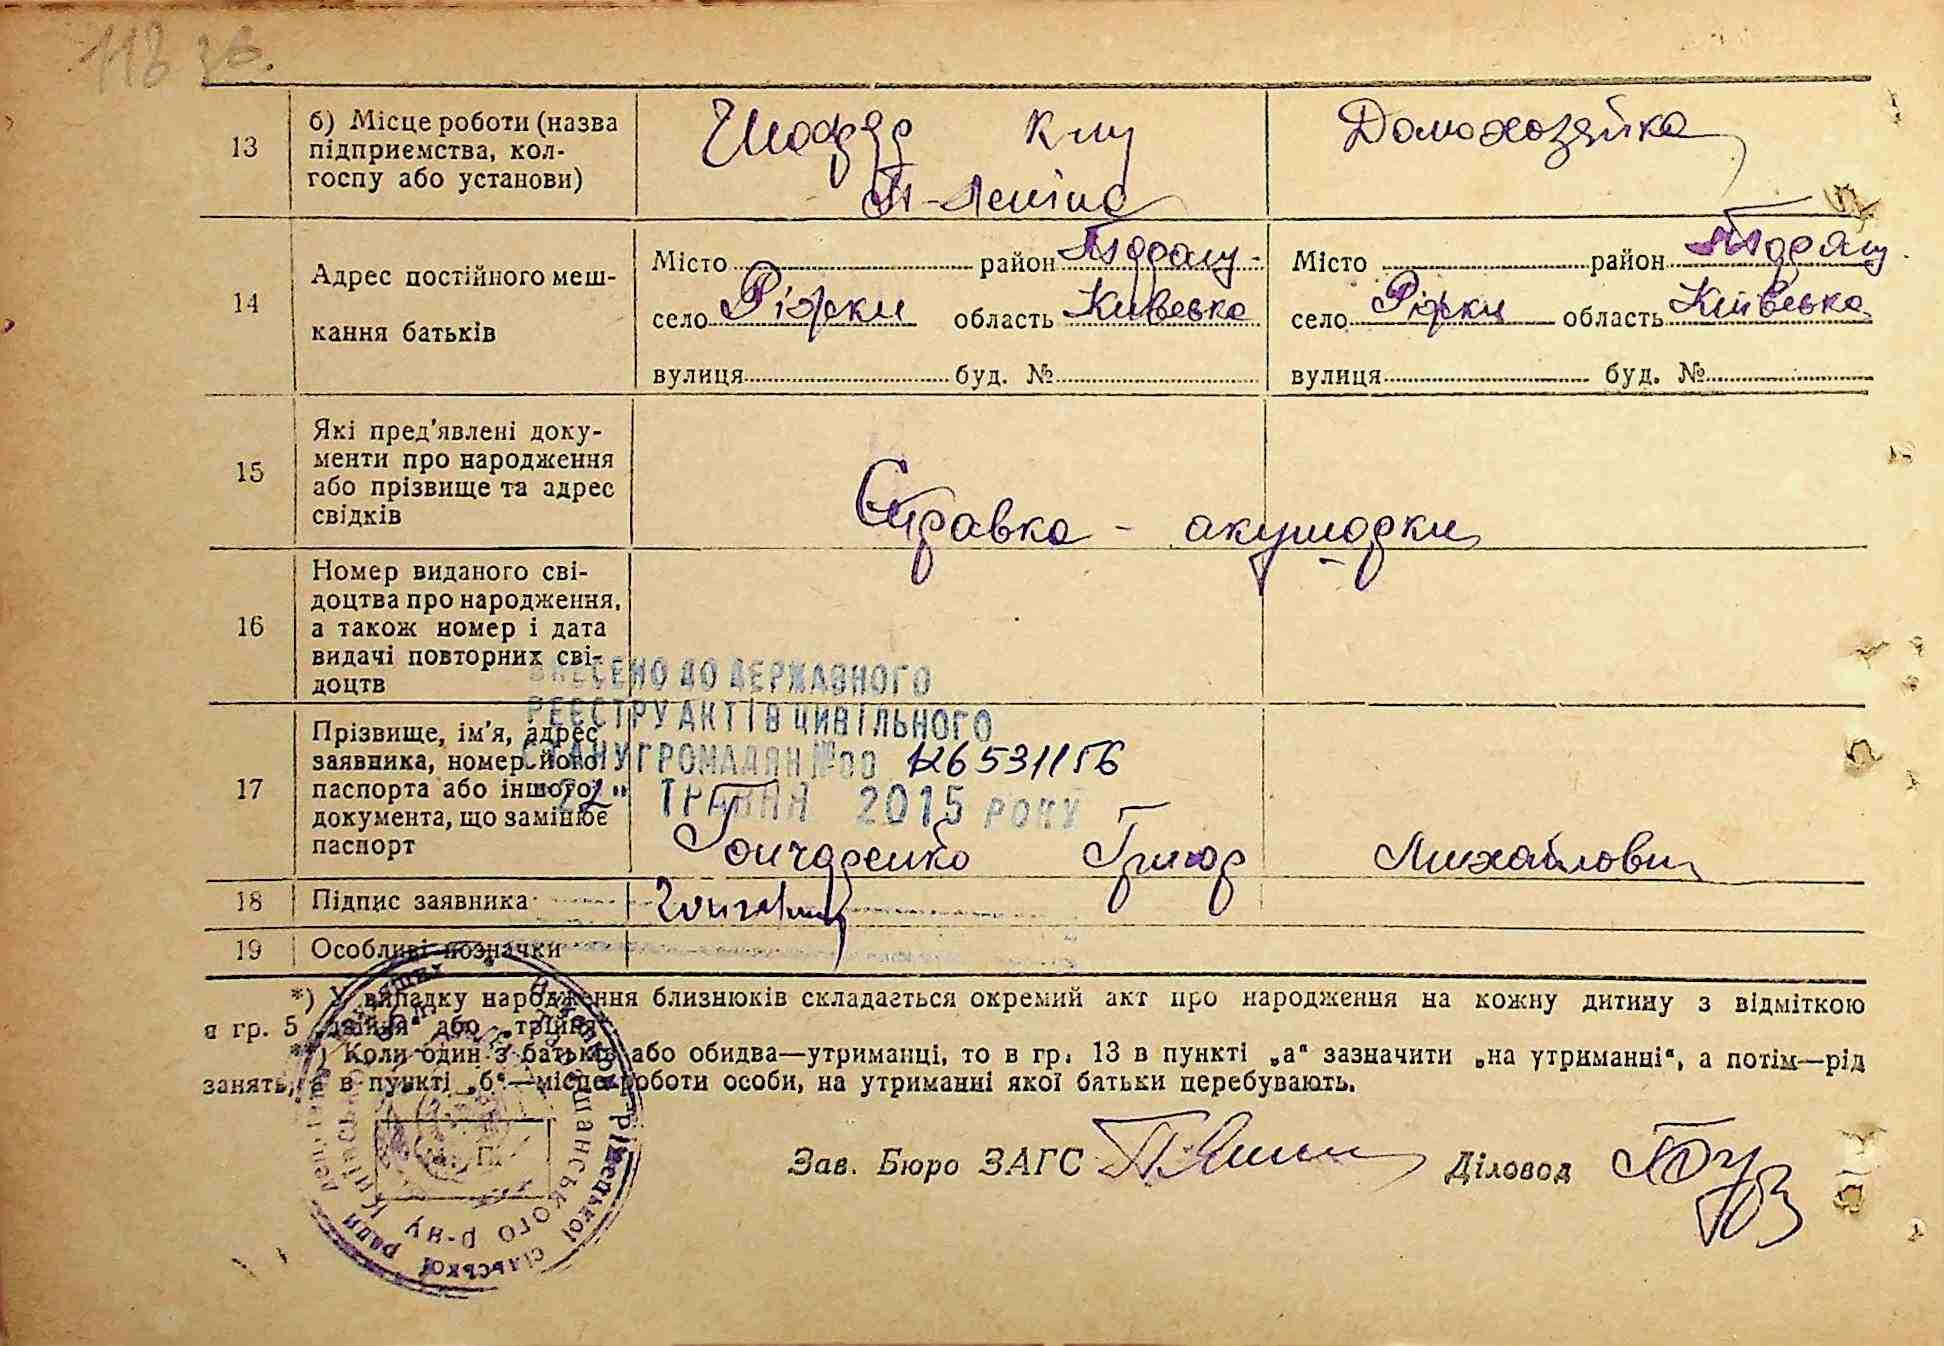 118 зв.
13 б) Місце роботи (назва
підприємства, кол-
госпу або установи)
Шофер к-пу
ім. Леніна
Домохозяйка
14 Адрес постійного меш-
кання батьків
Місто район
село Ріжки область Киівська
вулиця буд. №
Місто район
село Ріжки область Київська
вулиця буд. №
15 Які пред'явлені доку-
менти про народження
або прізвище та адрес
свідків
Справка - акушорки
16 Номер виданого сві-
доцтва про народження,
а також номер і дата
видачі повторних сві-
доцтв
ВНЕСЕНО ДО ДЕРЖАВНОГО
РЕЄСТРУ АКТІВ ЦИВІЛЬНОГО
СТАНУ ГРОМАДЯН № 00 126531156
"22" ТРАВНЯ 2015 РОКУ
17 Прізвище, ім'я, адрес
заявника, номер його
паспорта або іншого
документа, що замінює
паспорт
Гончаренко Григор Михайлович
18 Підпис заявника
19 Особливі позначки
*) У випадку народження близнюків складається окремий акт про народження на кожну дитину з відміткою
в гр. 5 „двійня" або „трійня".
**) Коли один з батьків або обидва—утриманці, то в гр. 13 в пункті „а" зазначити „на утриманні", а потім—рід
занять, а в пункті „б"—місце роботи особи, на утриманні якої батьки перебувають.
М. П.
Зав. Бюро ЗАГС Діловод